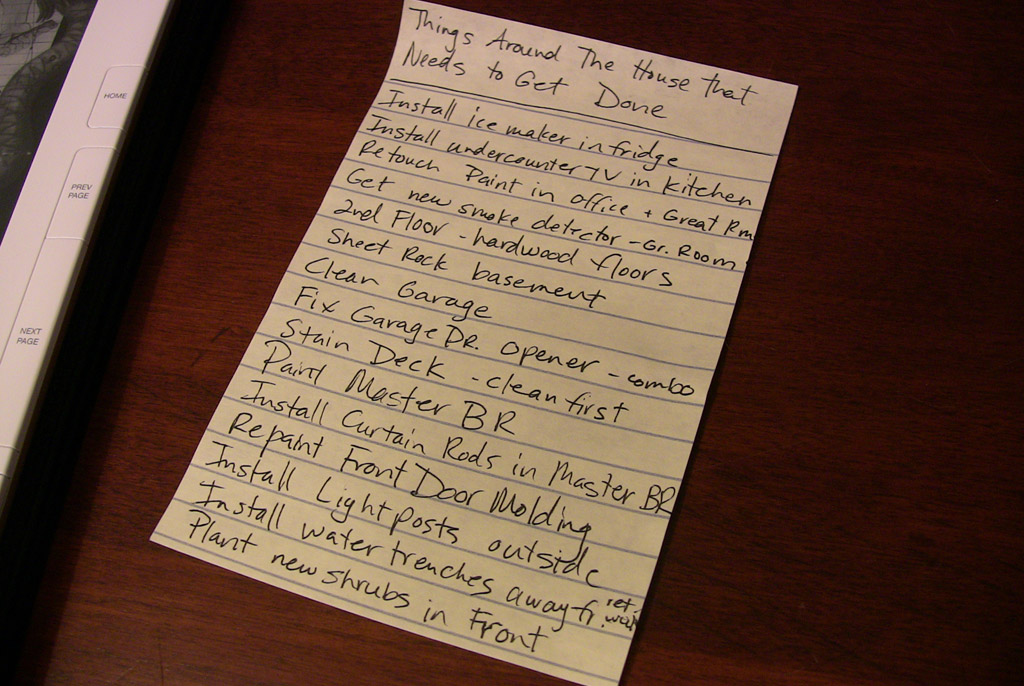 HOME
PREV
PAGE
NEXT
PAGE
Things Around The House that
Needs to Get Done
Install ice maker in fridge
Install undercounter TV in kitchen
Retouch Paint in office + Great Rm
Get new smoke detector - Gr. Room
2nd Floor - hardwood floors
Sheet Rock basement
Clean Garage
Fix Garage DR. opener - combo
Stain Deck - clean first
Paint Master BR
Install Curtain Rods in Master BR
Repaint Front Door Molding
Install Light posts outside
Install water trenches away fr. ret. wall
Plant new shrubs in Front